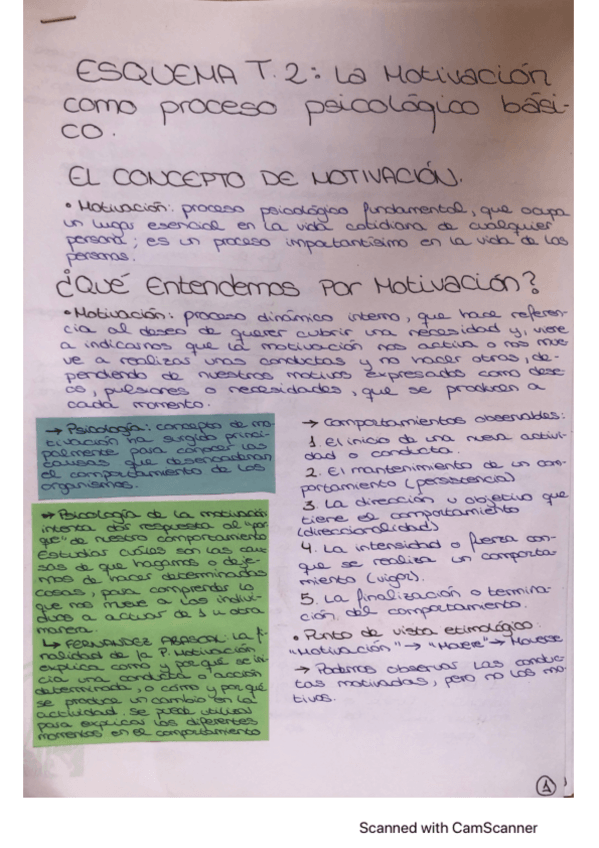 ESQUEMA T.2: La Motivación
como proceso psicológico bási-
co.
EL CONCEPTO DE MOTIVACIÓN.
• Motivación: proceso psicológico fundamental, que ocupa
un lugar esencial en la vida cotidiana de cualquier
persona; es un proceso importantísimo en la vida de las
personas.
¿Qué Entendemos Por Motivación?
• Motivación: proceso dinámico interno, que hace referen-
cia al deseo de querer cubrir una necesidad y, viene
a indicarnos que la motivación nos activa o nos mue-
ve a realizar unas conductas y no hacer otras, de-
pendiendo de nuestros motivos expresados como dese-
o, pulsiones o necesidades, que se producen a
cada momento.
→ Psicología: concepto de mo-
tivación ha surgido princi-
palmente para conocer las
causas que desencadenan
el comportamiento de los
organismos.
→ Psicología de la motivación
intenta dar respuesta al "por
qué" de nuestro comportamiento
Estudiar cuáles son las cau-
sas de que hagamos o deje-
mos de hacer determinadas
cosas, para comprender lo
que nos mueve a los indivi-
duos a actuar de 1 u otra
manera.
↳ FERNANDEZ ABASCAL: La fi-
nalidad de la P. Motivación
explica como y por qué se ini-
cia una conducta o acción
determinada, o cómo y por qué
se produce un cambio en la
actividad. Se puede utilizar
para explicar los diferentes
momentos en el comportamiento
→ Comportamientos observables:
1. El inicio de una nueva activi-
dad o conducta.
2. El mantenimiento de un com-
portamiento (persistencia)
3. La dirección u objetivo que
tiene el comportamiento
(direccionalidad)
4. La intensidad o fuerza con
que se realiza un comporta-
miento (vigor).
5. La finalización o termina-
ción del comportamiento.
• Punto de vista etimológico:
"Motivación" → "Movere" → Moverse
→ Podemos observar las conduc-
tas motivadas, pero no los mo-
tivos.
1
Scanned with CamScanner